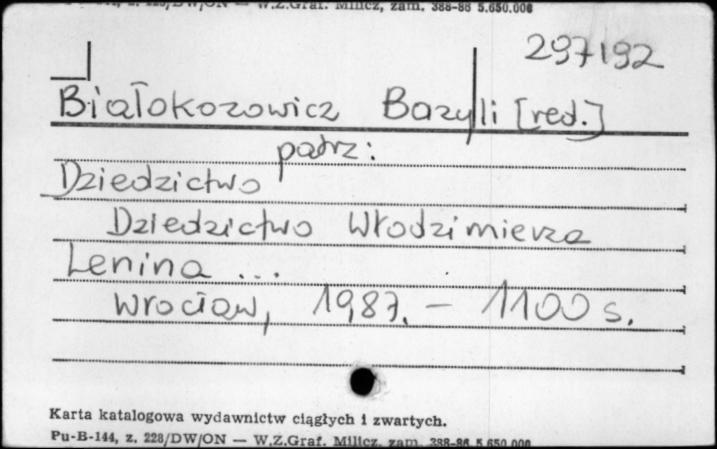 W.Z.Graf. Milicz, zam. 388-86 5.650.000
297192
Białokozowicz Bazyli [red.]
patrz:
Dziedzictwo
Dziedzictwo Włodzimierza
Lenina ...
Wrocław, 1987. – 1100 s.
Karta katalogowa wydawnictw ciągłych i zwartych.
Pu-B-144, z. 228/DW/ON — W.Z.Graf. Milicz, zam. 388-86 5.650.000